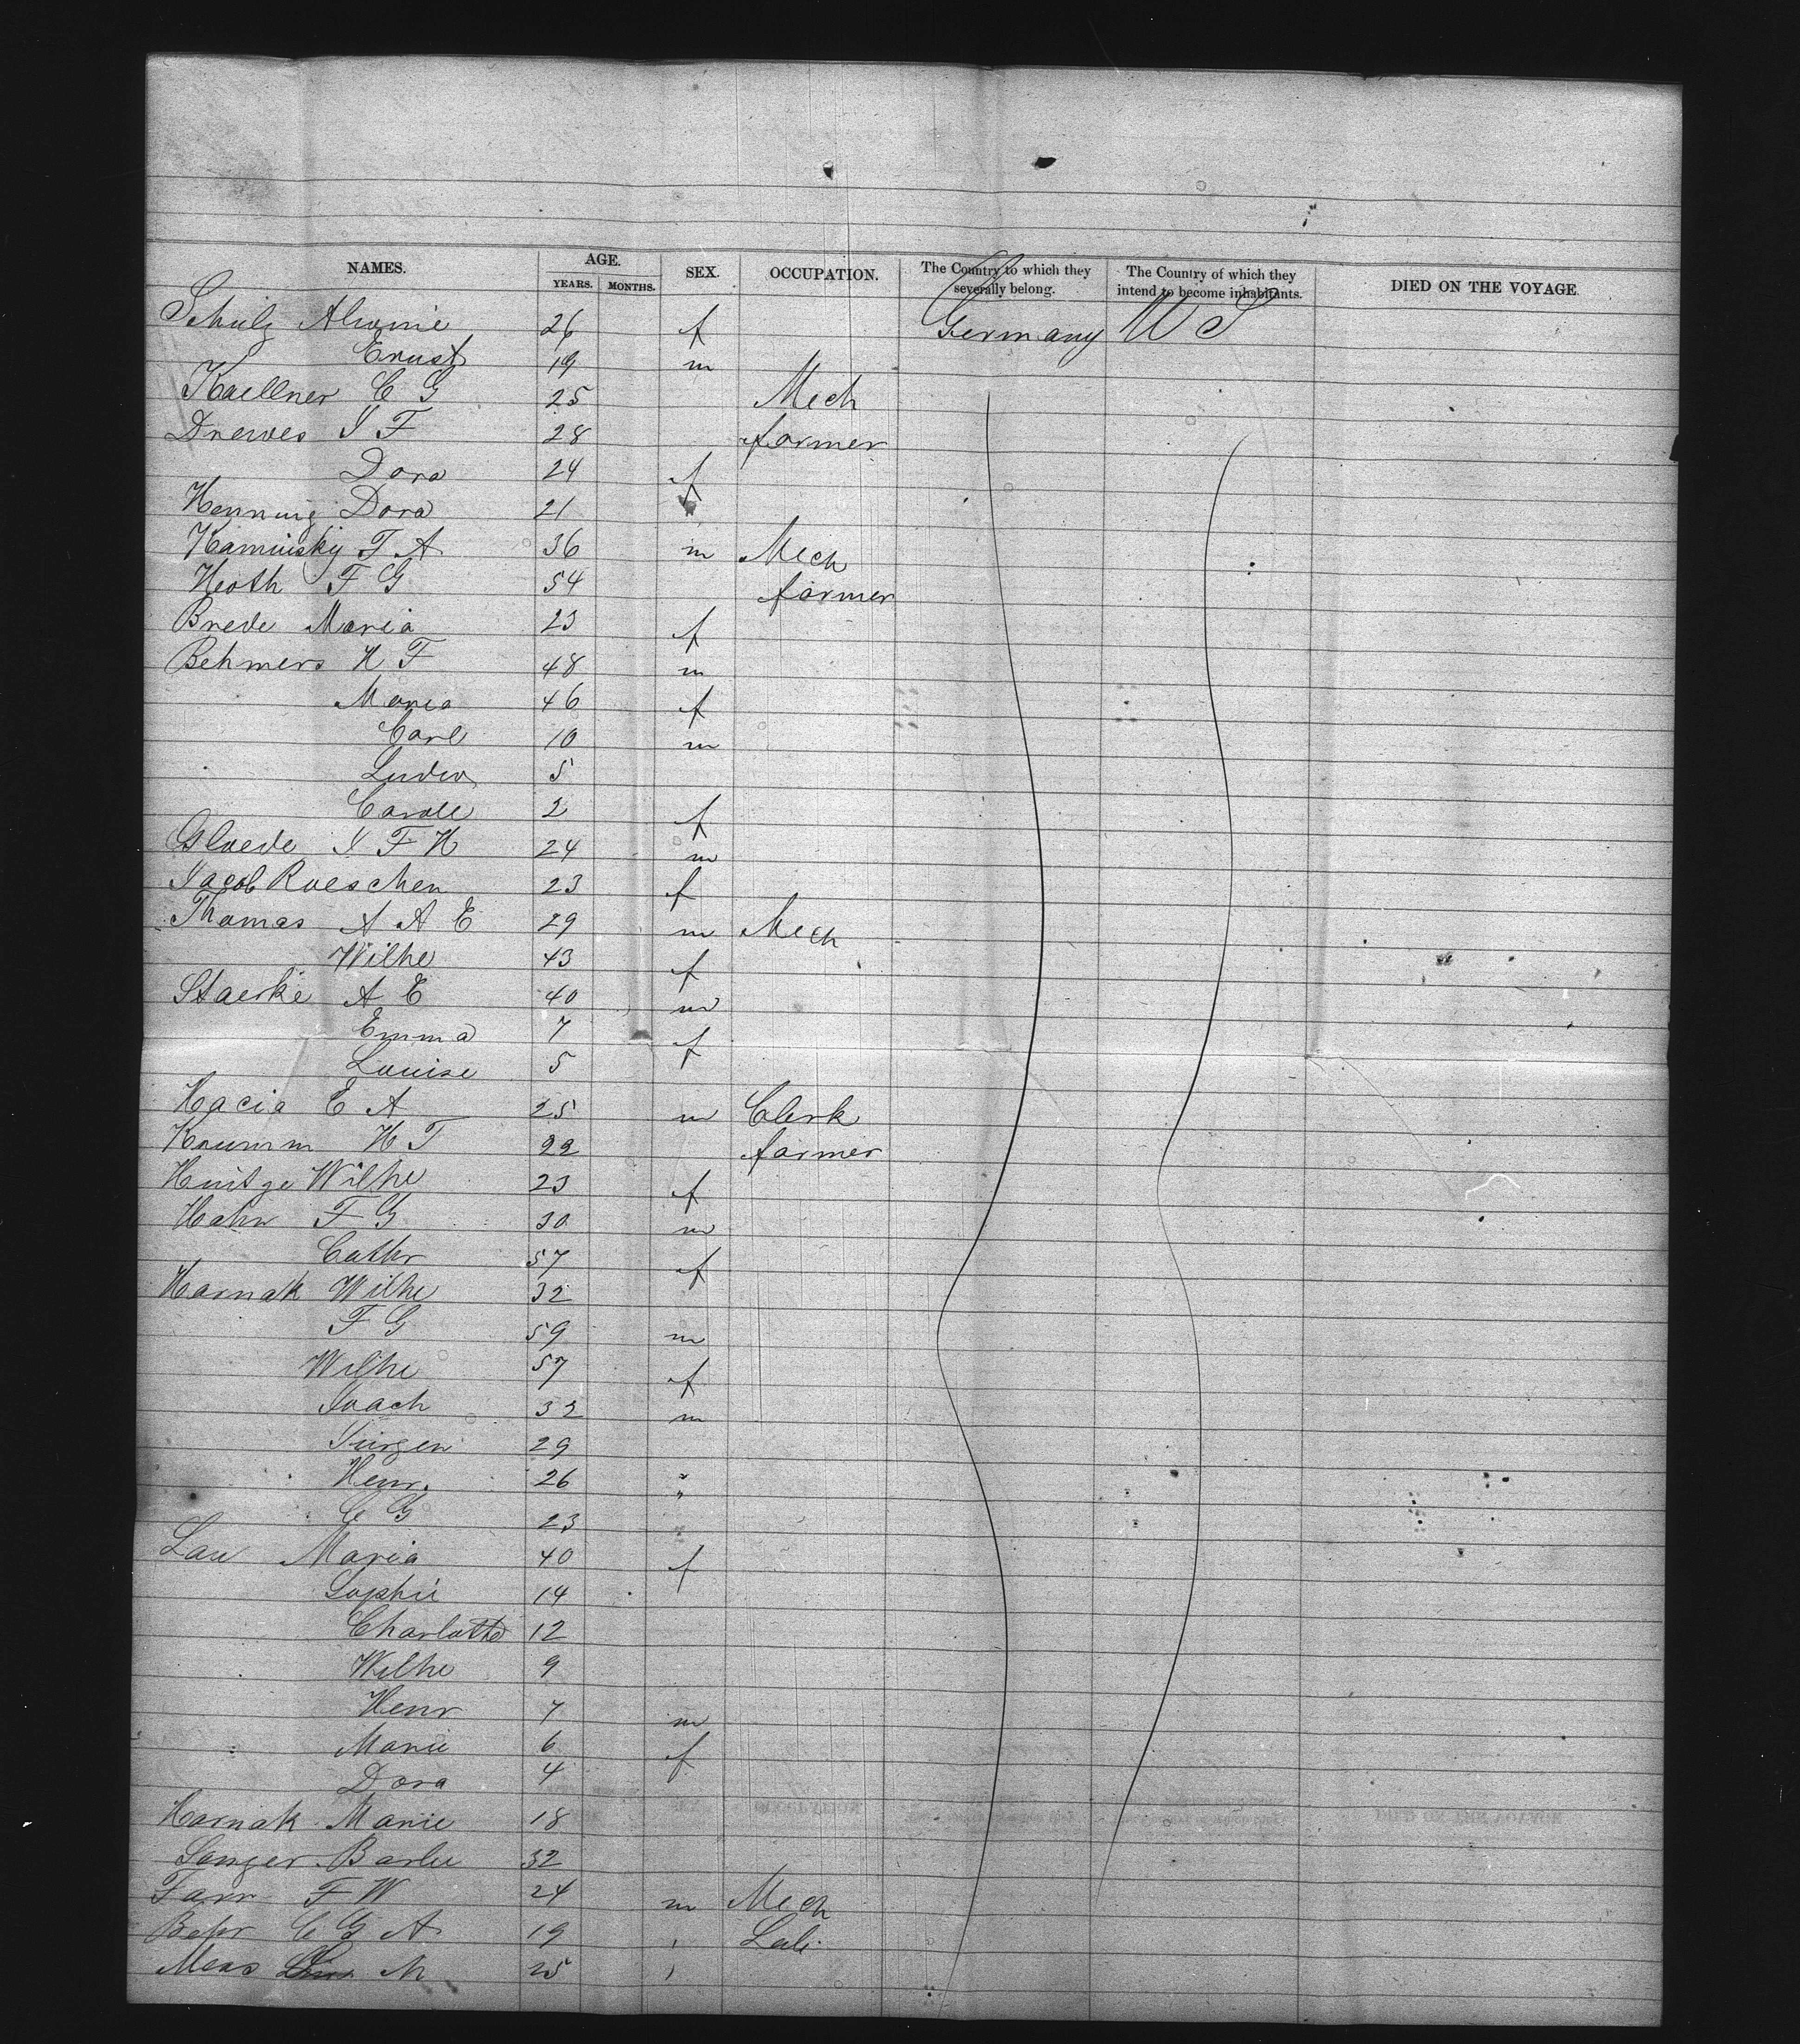 NAMES. AGE. SEX. OCCUPATION. The Country to which they severally belong. The Country of which they intend to become inhabitants. DIED ON THE VOYAGE
YEARS. MONTHS.
Schulz Alwine 26 f Germany U S
Ernst 19 m
Kaellner C G 25 Mech
Drewes J F 28 farmer
Dora 24 f
Henning Dora 21
Kaminsky F A 36 m Mech
Heoth F G 54 farmer
Brede Maria 23 f
Behmers H F 48 m
Maria 46 f
Carl 10 m
Ludw 5
Carole 2 f
Gloede J F H 24 m
Jacob Roeschen 23 f
Thomas A A E 29 m Mech
Wilhe 43 f
Staerke A E 40 m
Emma 7 f
Louise 5
Hacia E A 25 m Clerk
Krumm H T 22 farmer
Huitge Wilhe 23 f
Hahn F G 30 m
Cathr 57 f
Harnak Wilhe 32
F G 59 m
Wilhe 57 f
Joach 32 m
Jurgen 29
Henr. 26 "
C G 23 "
Lau Maria 40 f
Sophie 14
Charlotte 12
Wilhe 9
Henr 7 m
Marie 6 f
Dora 4
Harnak Marie 18
Langer Barbe 32
Farr F W 24 m Mech
Behr C G A 19 "
M 25 "